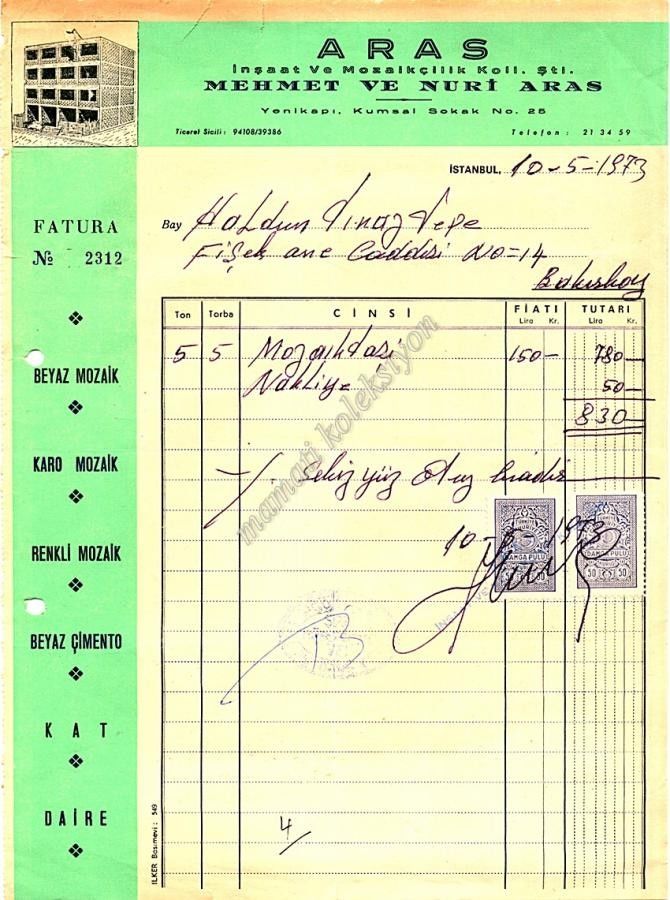 ARAS
İnşaat Ve Mozaikçilik Koll. Şti.
MEHMET VE NURİ ARAS
Yenikapı, Kumsal Sokak No. 25
Ticaret Sicili: 94108/39386
Telefon: 21 34 59
İSTANBUL, 10-5-1973
FATURA
№ 2312
Bay Haldun Tınaztepe
Fişekane Caddesi No=14
Bakırköy
Ton Torba CİNSİ FİATI Lira Kr. TUTARI Lira Kr.
5 5 Mozayıktaşi 150— 780—
Nakliye 50—
830
Sekiz yüz Otuz liradır
10-5-1973
TÜRKİYE
DAMGA PULU
50 50
DAMGA PULU
50 50
BEYAZ MOZAİK
KARO MOZAİK
RENKLİ MOZAİK
BEYAZ ÇİMENTO
KAT
DAİRE
4
İLKER Basımevi: 549
mamati koleksiyon